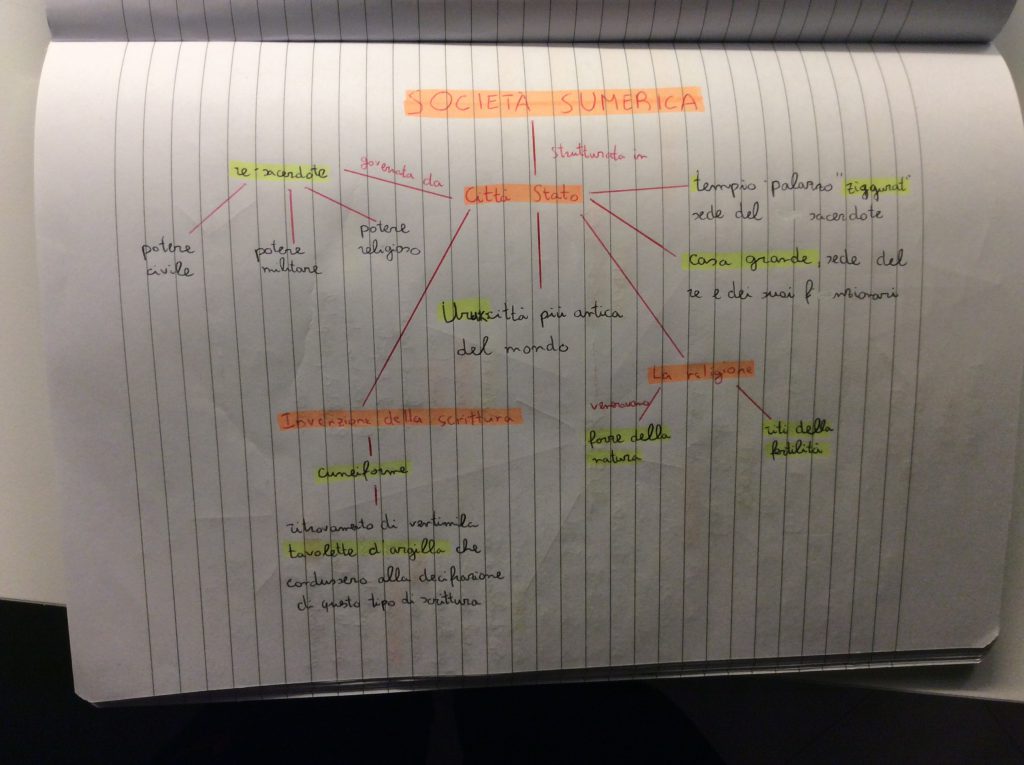 SOCIETÀ SUMERICA
strutturata in
re-sacerdote
governata da
Città Stato
tempio palazzo "ziggurat"
sede del sacerdote
potere
civile
potere
militare
potere
religioso
casa grande, sede del
re e dei suoi f nzionari
Uruk città più antica
del mondo
La religione
veneravano
forze della
natura
riti della
fertilità
Invenzione della scrittura
cuneiforme
ritrovamento di ventimila
tavolette d'argilla che
condussero alla decifrazione
di questo tipo di scrittura